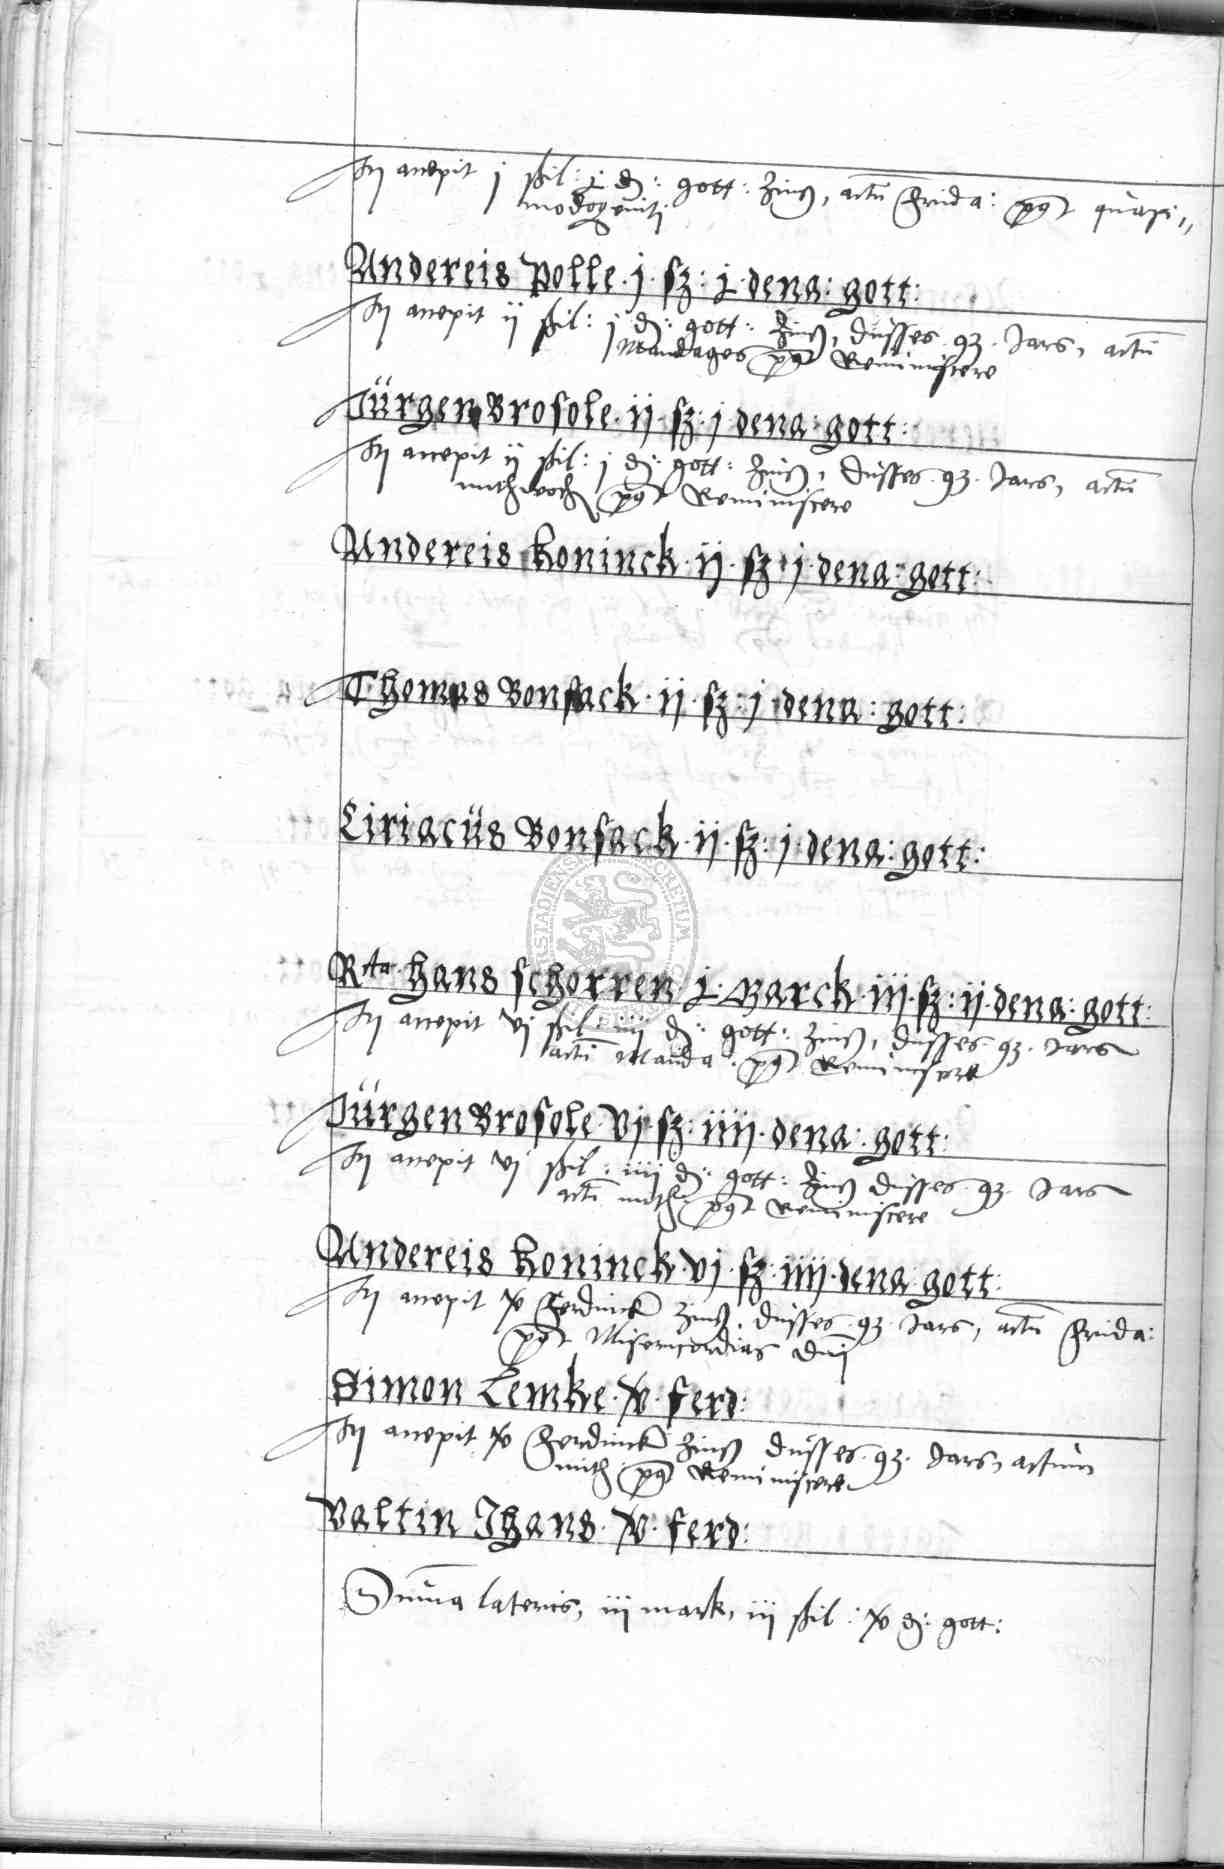 accepit j ssil: j d: gott: zinß, actū Frida: pꝰt quasi,,
modogeniti
Andereis Polle · j · sz: j · dena: gott:
accepit ij ssil: j d: gott: zinß, düsses · 93 · Jars, actū
Mandages pꝰt Reminiscere
Jürgen Brosole · ij · sz: j dena: gott:
accepit ij ssil: j d: gott: zinß, düsses · 93 · Jars, actū
mithwoch pꝰt Reminiscere
Andereis Koninck · ij · sz: j · dena: gott:
Thomas Bonsack · ij · sz: j · dena: gott:
Ciriacüs Bonsack · ij · sz: j · dena: gott:
Rta · Hans Schorren Marck · iij · sz: ij · dena: gott:
accepit vj ssil: iiij d: gott: zinß, düsses · 93 · Jars
actū Manda: pꝰt Reminiscere
Jürgen Brosole · vj · sz: iiij · dena: gott:
accepit vj ssil: iiij d: gott: zinß düsses · 93 · Jars
actū mith: pꝰt Reminiscere
Andereis Koninck · vj · sz: iiij · dena: gott:
accepit Ferdinck zinß, düsses · 93 · Jars, actū Frida:
pꝰt Misericordias dnj
Simon Lemke · v · ferd:
accepit Ferdinck zinß düsses · 93 · Jars, actum
mith: pꝰt Reminiscere
Valtin Jhans · v · ferd:
Suma lateris, iij mark, iij ssil: d: gott: